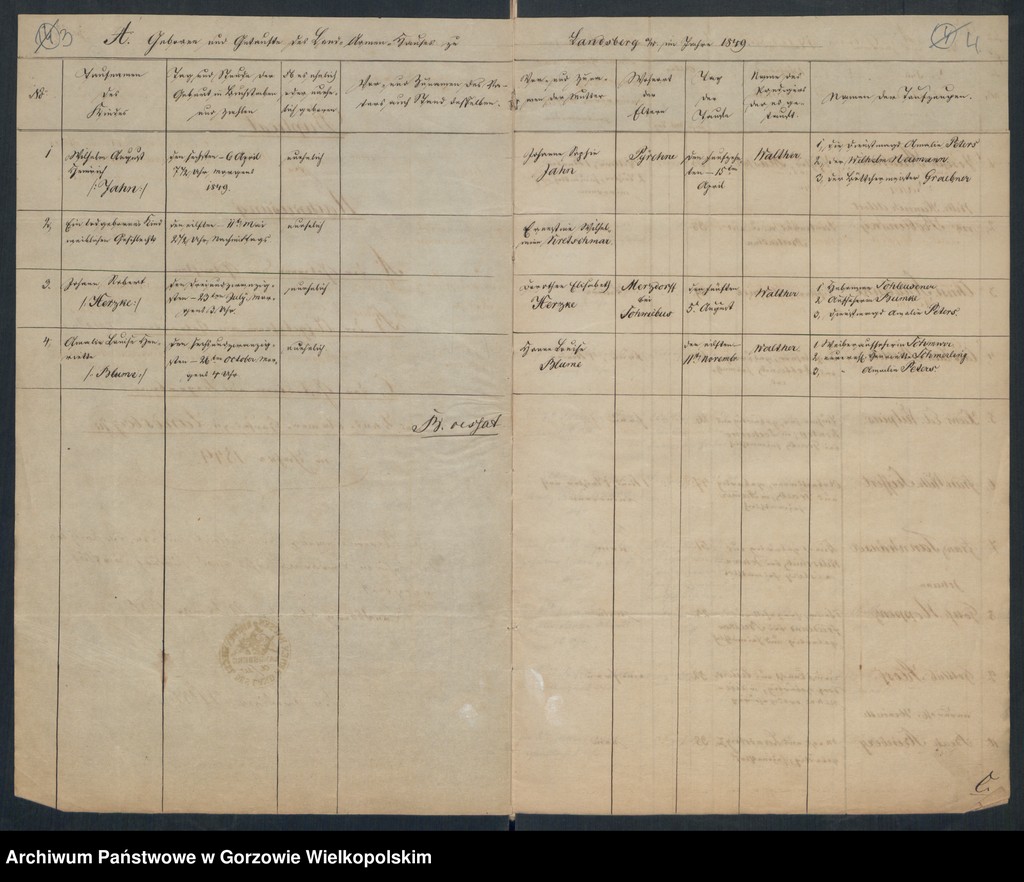 3
4
A. Geborene und Getaufte des Land-Armen-Hauses zu Landsberg a/W. im Jahre 1849.
No
Taufnamen
des
Kindes
Tag und Stunde der
Geburt in Buchstaben
und Zahlen
Ob es ehelich
oder unehe-
lich geboren
Vor- und Zunamen des Va-
ters auch Stand desselben.
Vor- und Zuna-
men der Mutter
Wohnort
der
Eltern
Tag
der
Taufe
Name des
Predigers
der es ge-
tauft.
Namen der Taufzeugen.
1
Wilhelm August
Heinrich
/: Jahn :/
den sechsten - 6 April
7½ Uhr morgens
1849.
unehelich
Johanne Sophie
Jahn
Pyrehne
den funfzehn-
ten - 15ten
April
Walther
1, die Dienstmagd Amalie Peters
2, der Wilhelm Naumann
3, der Graebner
2,
Ein todgeborenes Kind
weiblichen Geschlechts
den eilften - 11ten Mai
2½ Uhr, Nachmittags
unehelich
Ernestine Wilhel-
mine Kretschmar
3.
Johann Robert
/: Herzke :/
den dreiundzwanzig-
sten - 23ten July, mor-
gens 3 Uhr.
unehelich
Dorothee Elisabeth
Herzke
Merzdorff
bei
Schwiebus
den fünften
5t August
Walther
1 Schleusener
2 Aufseherin Bumke
3, Dienstmagd Amalie Peters.
4.
Amalie Louise Hen-
riette
/: Blume :/
den sechsundzwanzig-
sten - 26ten October, mor-
gens 4 Uhr.
unehelich
Louise
Blume
den eilften
11ten Novemb
Walther
1, Weiberaufseherin Schommer
2, Henriette Schmerling
3, " Amalie Peters
B. vertat
C.
Archiwum Państwowe w Gorzowie Wielkopolskim